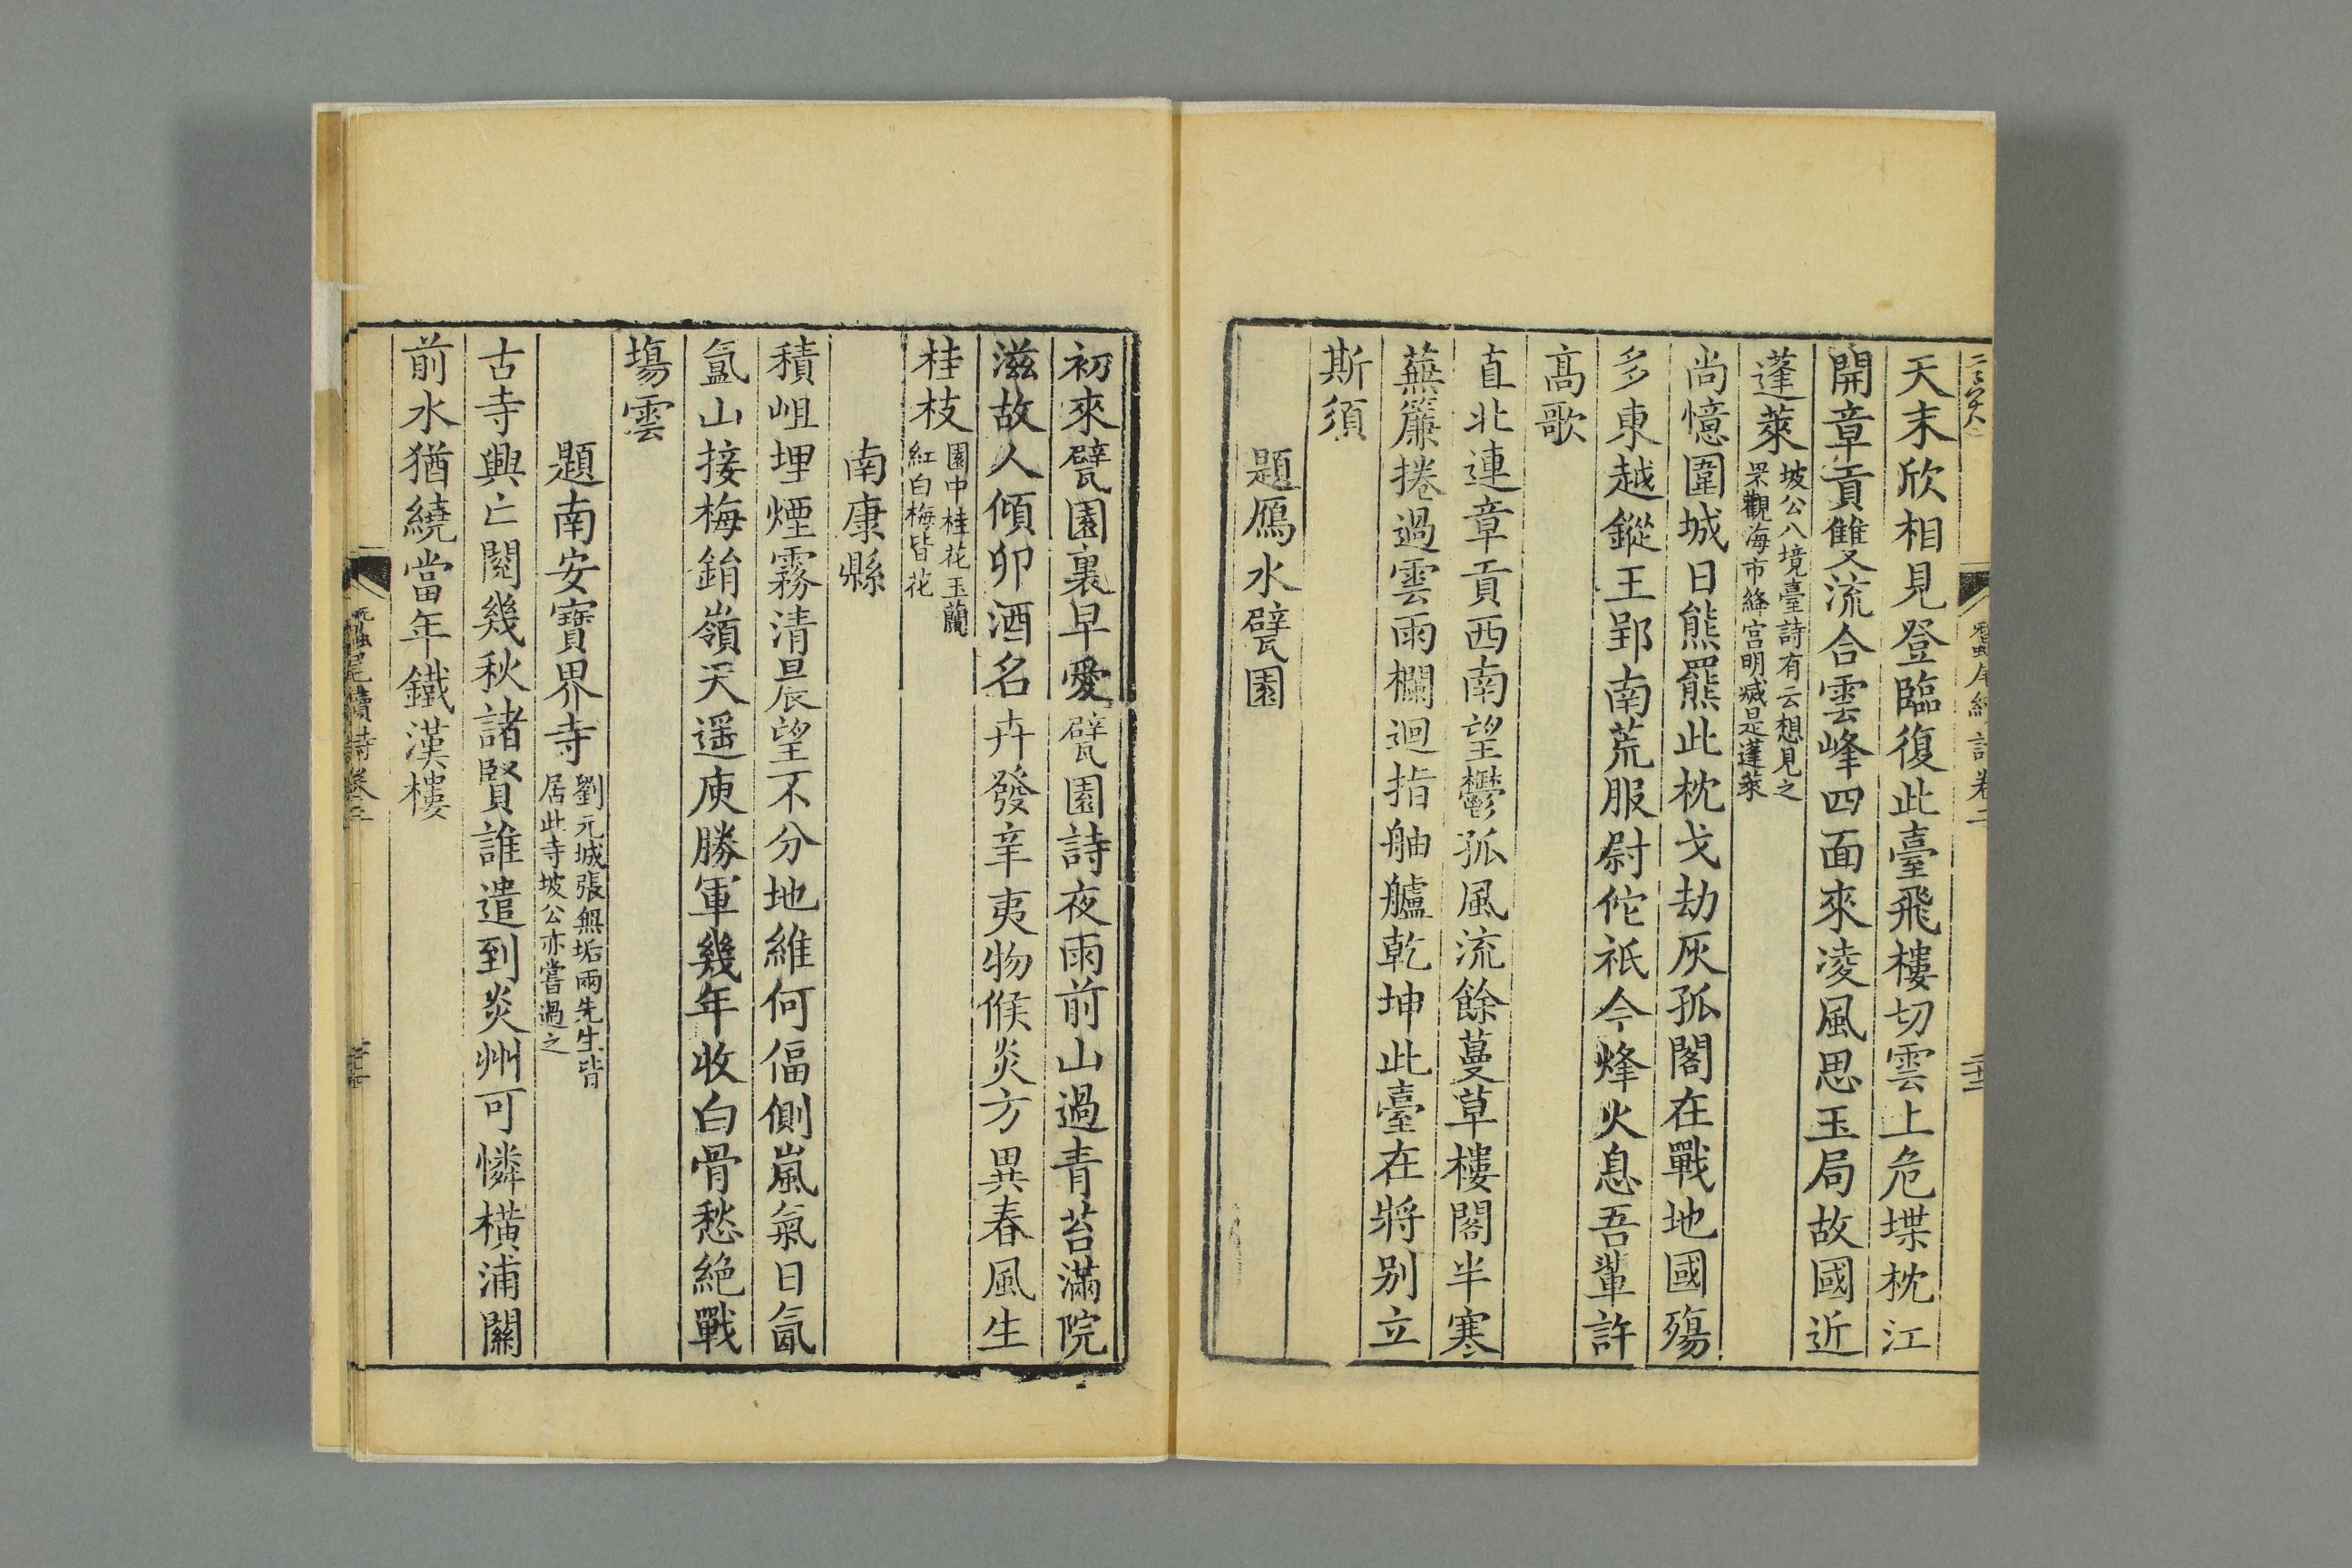 天末欣相見登臨復此臺飛樓切雲上危堞枕江
開章貢雙流合雲峰四面來凌風思玉局故國近
蓬萊坡公八境臺詩有云想見之
杲觀海市絳宫明滅是蓬萊
尚憶圍城日熊羆此枕戈劫灰孤閣在戰地國殤
多東越鏦王郢南荒服尉佗祇今烽火息吾輩許
高歌
直北連章貢西南望鬱孤風流餘蔓草樓閣半寒
蕪簾捲過雲雨欄迴指舳艫乾坤此臺在將别立
斯須
題鴈水甓園
初來甓園裏早愛甓園詩夜雨前山過青苔滿院
滋故人傾卯酒名卉發辛夷物候炎方異春風生
桂枝園中桂花玉蘭
紅白梅皆花
南康縣
積岨埋煙霧清晨望不分地維何偪側嵐氣日氤
氳山接梅鋗嶺天遥庾勝軍幾年收白骨愁絶戰
塲雲
題南安寶界寺劉元城張無垢兩先生皆
居此寺坡公亦嘗過之
古寺興亡閱幾秋諸賢誰遣到炎州可憐橫浦關
前水猶繞當年鐵漢樓
蠶尾續詩卷二